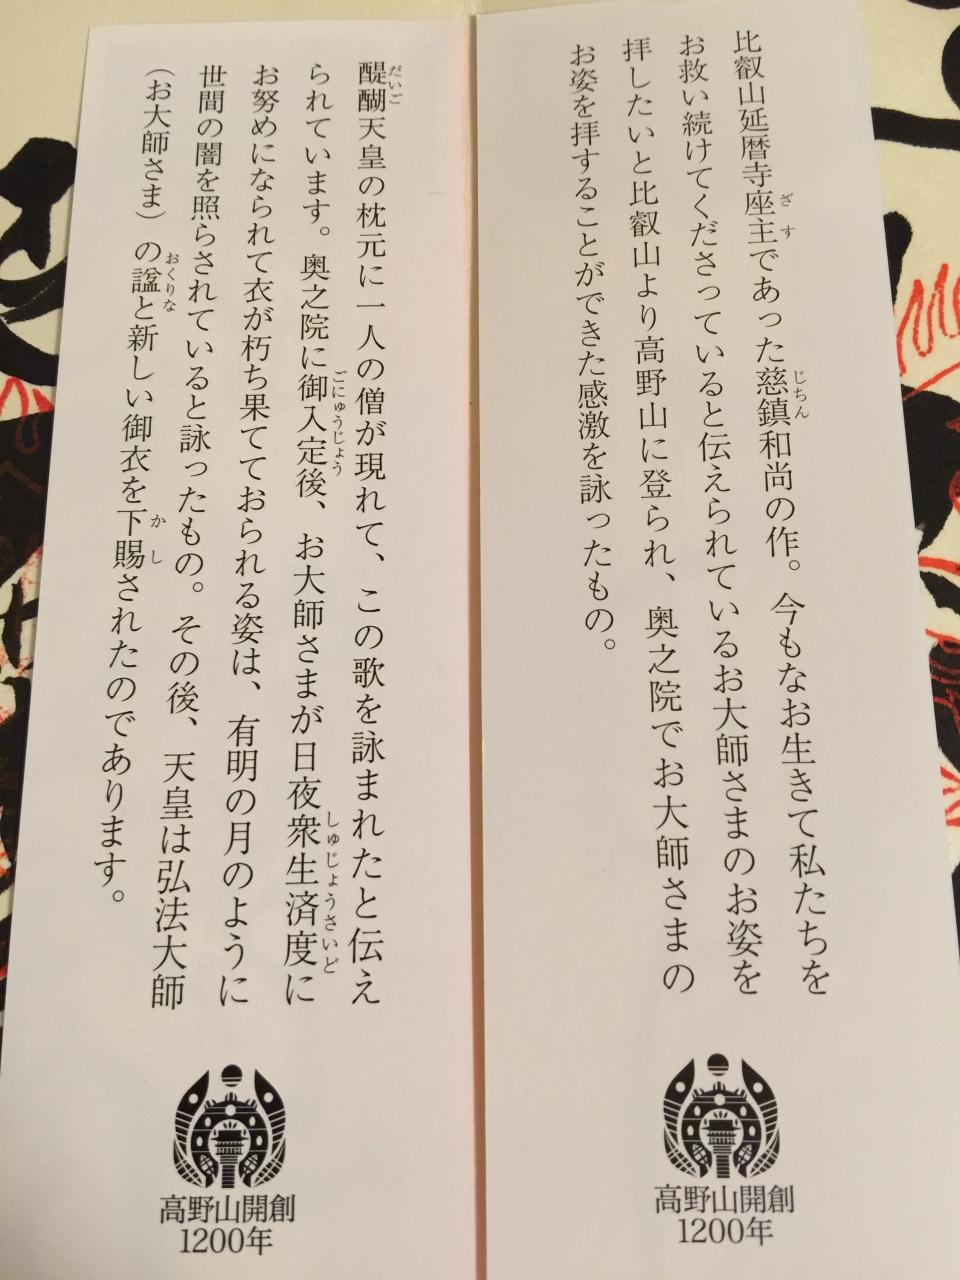 比叡山延暦寺座主であった慈鎮和尚の作。今もなお生きて私たちを
お救い続けてくださっていると伝えられているお大師さまのお姿を
拝したいと比叡山より高野山に登られ、奥之院でお大師さまの
お姿を拝することができた感激を詠ったもの。
ざす
じちん
高野山開創
1200年
醍醐天皇の枕元に一人の僧が現れて、この歌を詠まれたと伝え
られています。奥之院に御入定後、お大師さまが日夜衆生済度に
お努めになられて衣が朽ち果てておられる姿は、有明の月のように
世間の闇を照らされていると詠ったもの。その後、天皇は弘法大師
（お大師さま）の諡と新しい御衣を下賜されたのであります。
だいご
ごにゅうじょう
しゅじょうさいど
おくりな
かし
高野山開創
1200年